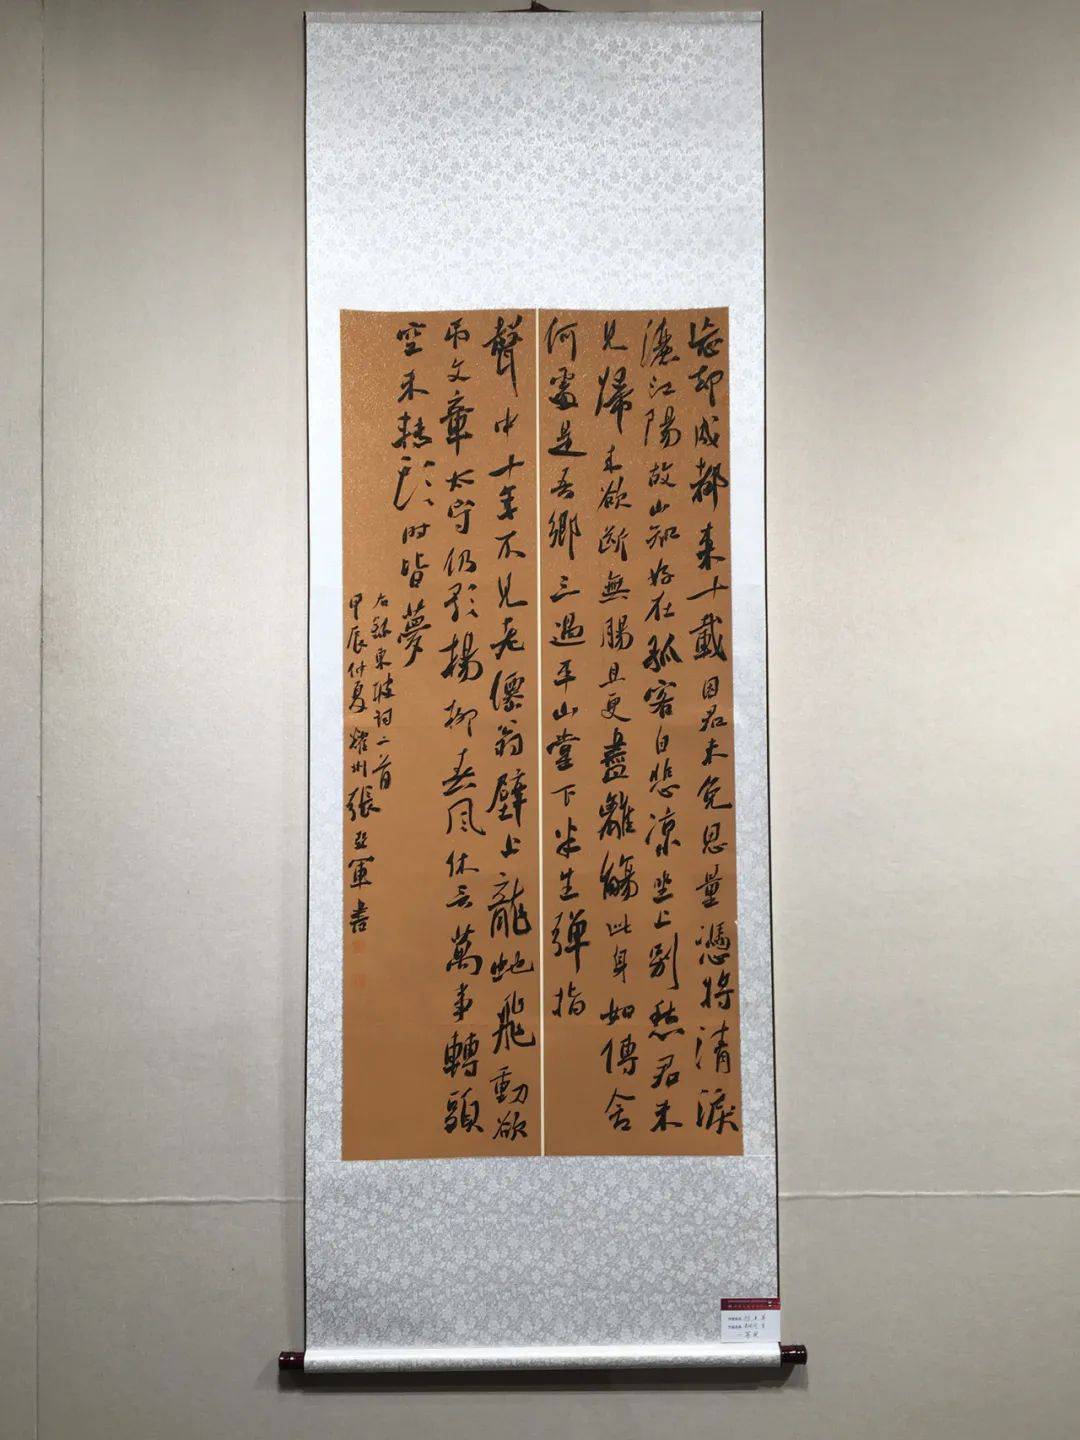 忘却成都来十載因君未免思量憑將清淚
灑江陽故山知好在孤客自悲凉坐上別愁君未
見歸来欲断無腸且更盡離觴此身如傳舍
何處是吾鄉三過平山堂下半生弹指
聲中十年不見老僊翁壁上龍蛇飛動欲
吊文章太守仍歌楊柳春風休言萬事轉頭
空未轉頭時皆夢
右蘇東坡词二首
甲辰仲夏耀州張亞軍書